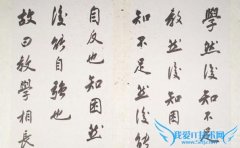 學然後知不足
教然後知困
知不足然後能
自反也知困然
後能自強也
故曰教學相長
我爱IT技术网